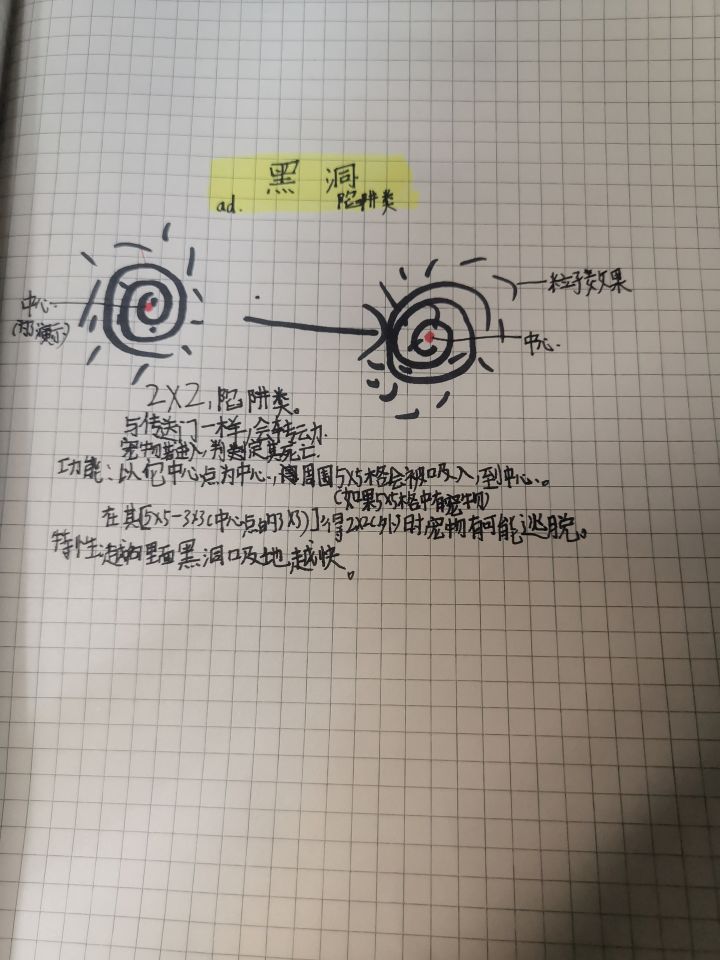 黑洞
ad. 陷阱类
中心
(演示)
粒子效果
中心.
2X2,陷阱类。
与传送门一样,会转动.
宠物进入,判定其死亡.
功能:以它中心点为中心,周围5X5格会被吸入,到中心。
(如果5X5格中有宠物)
在其[5X5-3X3(中心点的3X3)]得2X2(外)时宠物有可能逃脱。
特性:越向里面黑洞吸地越快。